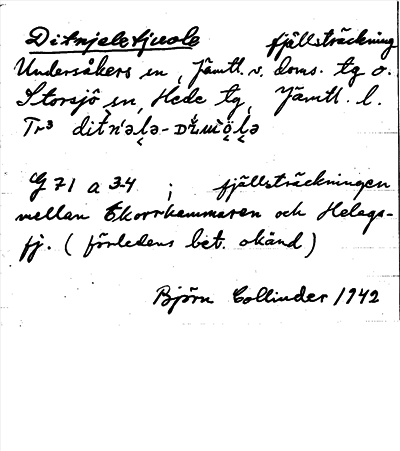 Ditnjeletjuole fjällsträckning
Undersåkers sn, Jämtl. v. doms. tg o.
Storsjö sn, Hede tg, Jämtl. l.
Tr3
G 71 a 34 ; fjällsträckningen
mellan Ekorrhammaren och Helags-
fj. (förledens bet. okänd)
Björn Collinder 1942